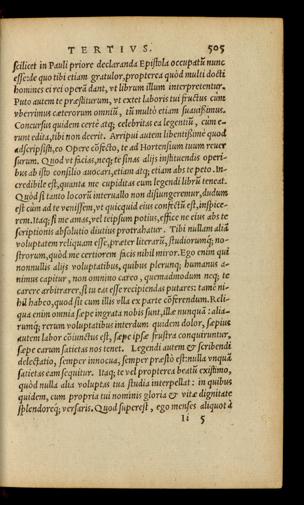 TERTIVS. 505
scilicet in Pauli priore declaranda Epistola occupatũ nunc
esse: de quo tibi etiam gratulor, propterea quòd multi docti
homines ei rei operã dant, vt librum illum interpretentur.
Puto autem te præstiturum, vt extet laboris tui fructus cùm
vberrimus cæterorum omniũ, tũ multò etiam suauissimus.
Concursus quidem certè atq; celebritas ea legentiũ, cùm e-
runt edita, tibi non deerit. Arripui autem libentissimè quod
adscripsisti, eo Opere cõfecto, te ad Hortensium tuum reuer
surum. Quod vt facias, neq; te sinas alijs instituendis operi-
bus ab isto consilio auocari, etiam atq; etiam abs te peto. In-
credibile est, quanta me cupiditas eum legendi librũ teneat.
Quòd si tanto locorũ interuallo non disiungeremur, dudum
est cùm ad te venissem, vt quicquid eius confectũ est, inspice-
rem. Itaq; si me amas, vel teipsum potius, effice ne eius abs te
scriptionis absolutio diutius protrahatur. Tibi nullam aliã
voluptatem reliquam esse, præter literarũ, studiorumq; no-
strorum, quòd me certiorem facis nihil miror. Ego enim qui
nonnullis alijs voluptatibus, quibus plerunq; humanus a-
nimus capitur, non omnino careo, quemadmodum neq; te
carere arbitrarer, si tu eas esse recipiendas putares: tamẽ ni-
hil habeo, quod sit cum illis vlla ex parte cõferendum. Reli-
qua enim omnia sæpe ingrata nobis sunt, illæ nunquã: alia-
rumq; rerum voluptatibus interdum quidem dolor, sæpius
autem labor cõiunctus est, sæpe ipsæ frustra conquiruntur,
sæpe earum satietas nos tenet. Legendi autem & scribendi
delectatio, semper innocua, semper præstò est: nulla vnquã
satietas eam sequitur. Itaq; te vel propterea beatũ existimo,
quòd nulla alia voluptas tua studia interpellat: in quibus
quidem, cum propria tui nominis gloria & vitæ dignitate
splendoreq; versaris. Quod superest, ego menses aliquot à
Ii 5